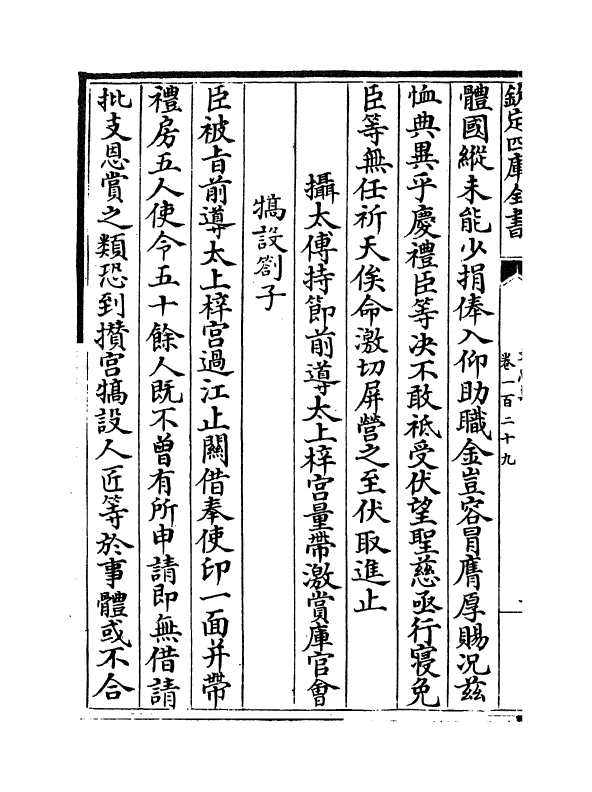 欽定四庫全書
卷一百二十九
體國縱未能少捐俸入仰助職金豈容冒膺厚賜況茲
恤典異乎慶禮臣等決不敢祗受伏望聖慈亟行寢免
臣等無任祈天俟命激切屏營之至伏取進止
攝太傅持節前導太上梓宮量帶激賞庫官會
犒設劄子
臣被旨前導太上梓宮過江止關借奉使印一面并帶
禮房五人使令五十餘人既不曾有所申請即無借請
批支恩賞之類恐到攢宮犒設人匠等於事體或不合